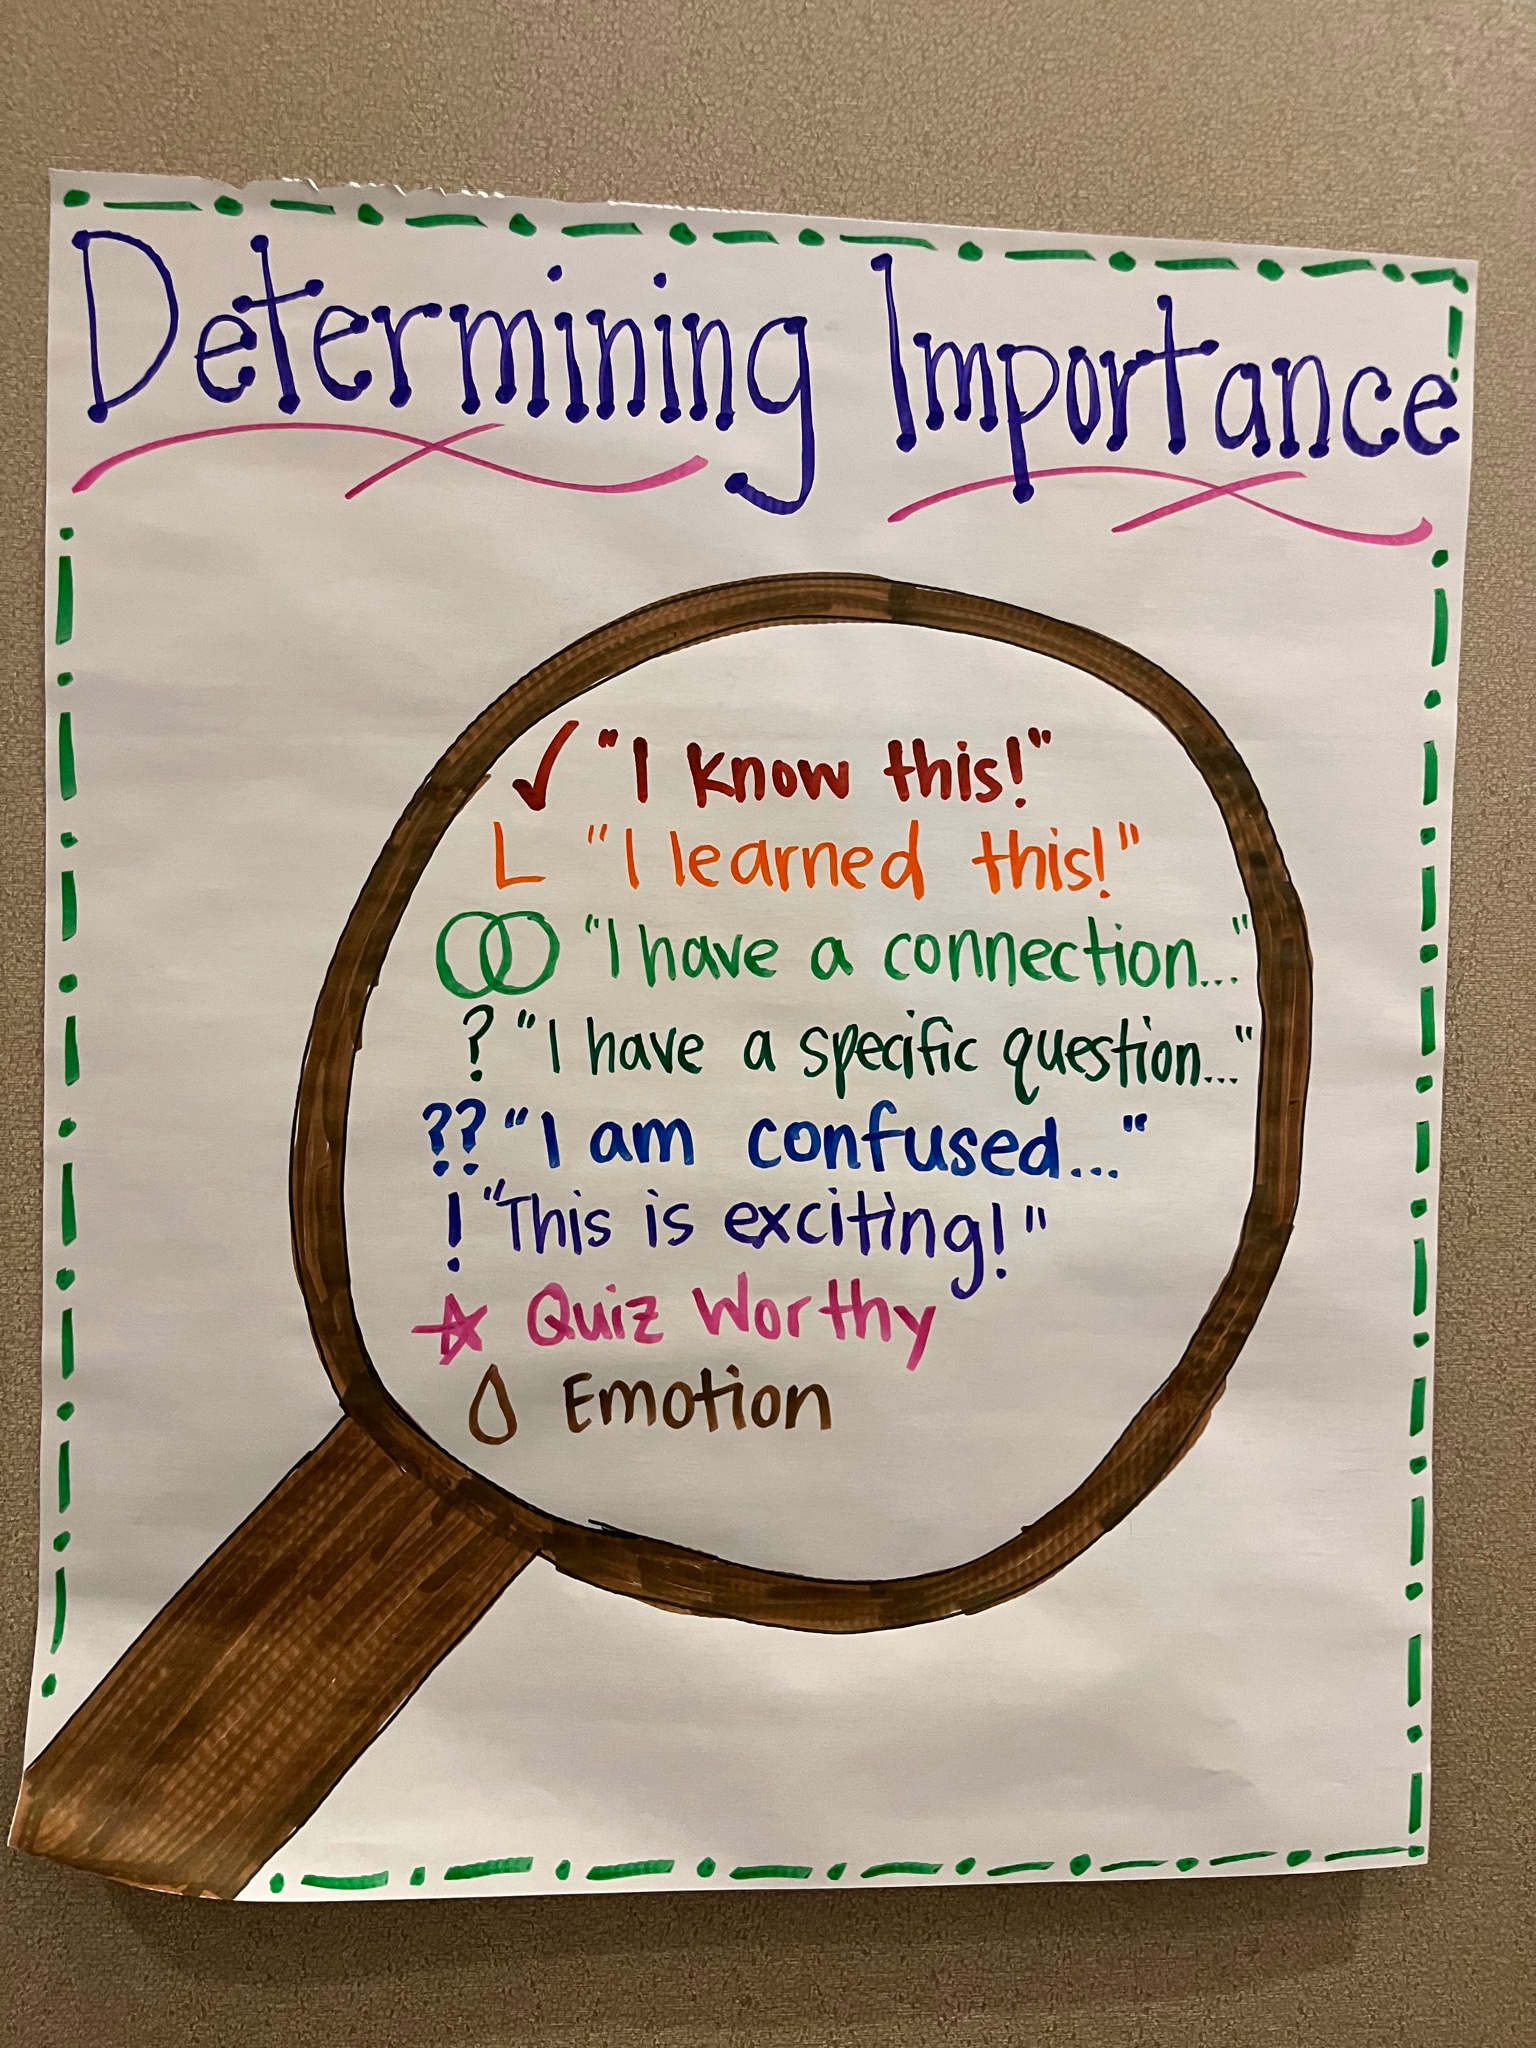 Determining Importance
✓ "I know this!"
L "I learned this!"
"I have a connection..."
? "I have a specific question..."
?? "I am confused..."
! "This is exciting!"
☆ Quiz Worthy
Emotion